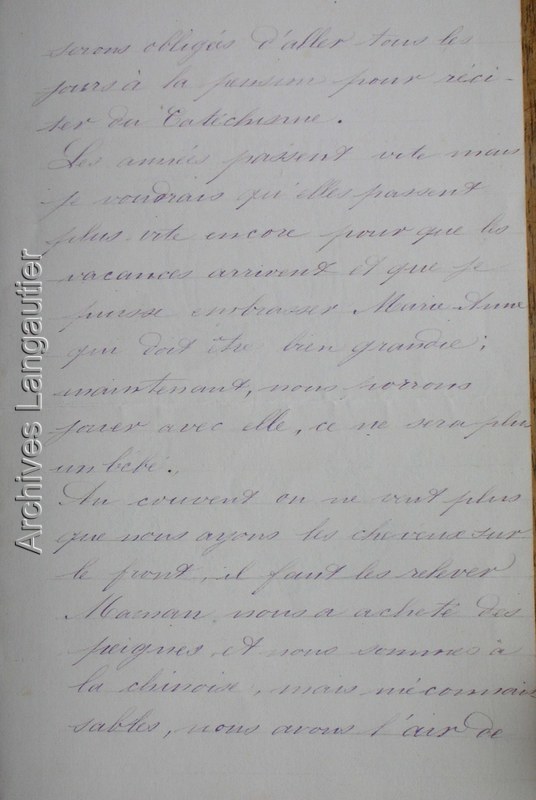 serons obligés d'aller tous les
jours à la pension pour réci-
ter du Catéchisme.
Les années passent vite mais
je voudrais qu'elles passent
plus vite encore pour que les
vacances arrivent et que je
puisse embrasser Marie Anne
qui doit être bien grandie;
maintenant, nous porrons
jouer avec elle, ce ne sera plus
un bébé.
Au couvent on ne veut plus
que nous ayons les cheveux sur
le front, il faut les relever
Maman nous a acheté des
peignes et nous sommes à
la chinoise, mais méconnais
sables, nous avons l'air de
Archives Langautier